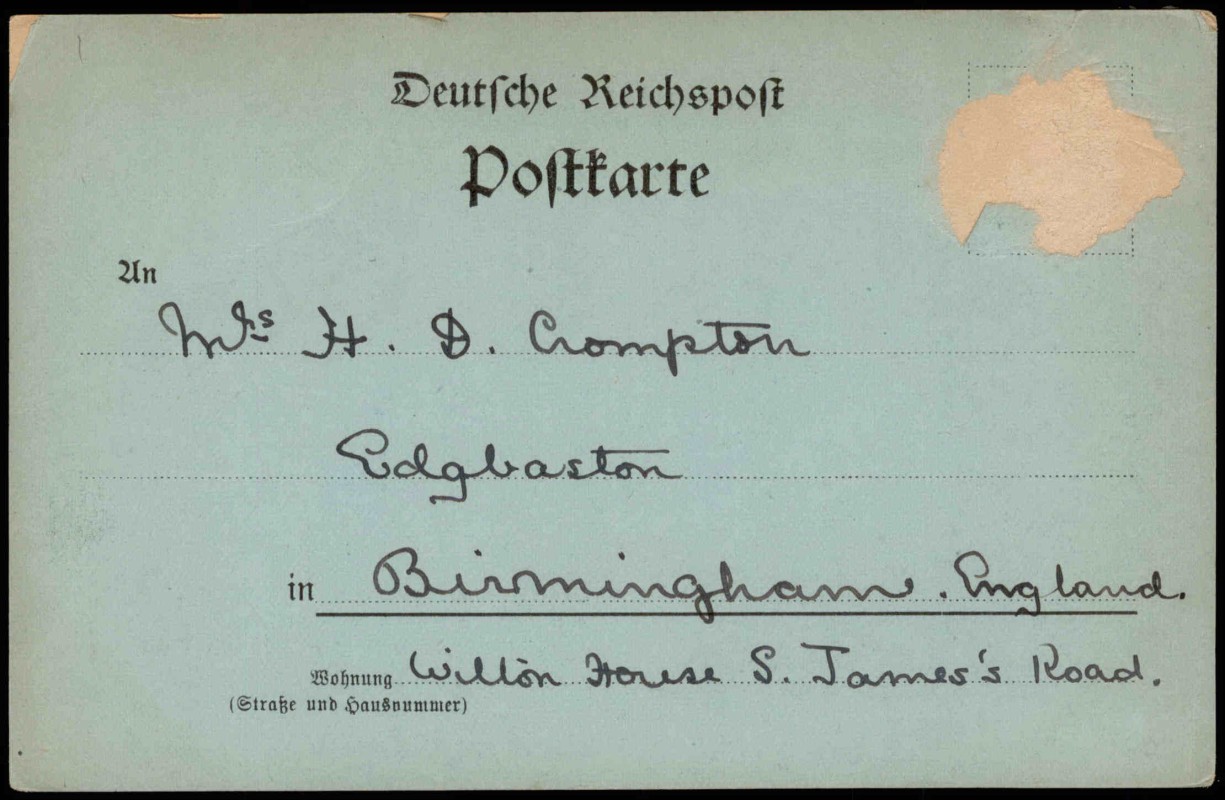 Deutsche Reichspost
Postkarte
An
Mrs H. D. Crompton
Edgbaston
in Birmingham. England.
Wohnung Wilton House S. James's Road.
(Straße und Hausnummer)